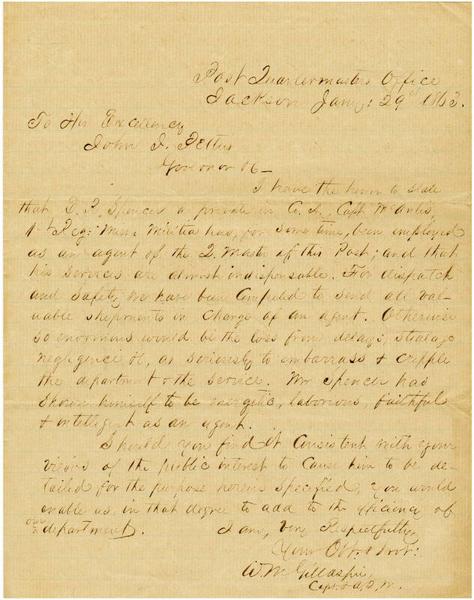 Post Quartermasters Office
Jackson Jany: 29th 1863.
To His Excellency
John J. Pettus
Governor &c —
I have the honor to state
that D. P. Spencer a private in Co. A. Capt
1st Reg: Miss Militia has, for some time, been employed
as an agent of the Q. Master of this Post; and that
his services are almost indispensable. For dispatch
and safety we have been compelled to send all val-
uable shipments in charge of an agent. Otherwise
so enormous would be the loss from delays, stealage
negligence &c, as seriously to embarrass & cripple
the department & the service. Mr Spencer has
shown himself to be energetic, laborious, faithful
& intelligent as an agent.
Should you find it consistent with your
views of the public interest to cause him to be de-
tailed for the purpose herein specified, you would
enable us, in that degree to add to the efficiency of
our department. I am, very Respectfully,
Your Obt. Svt:
W. M Gillaspie,
Capt. & A. Q. M.